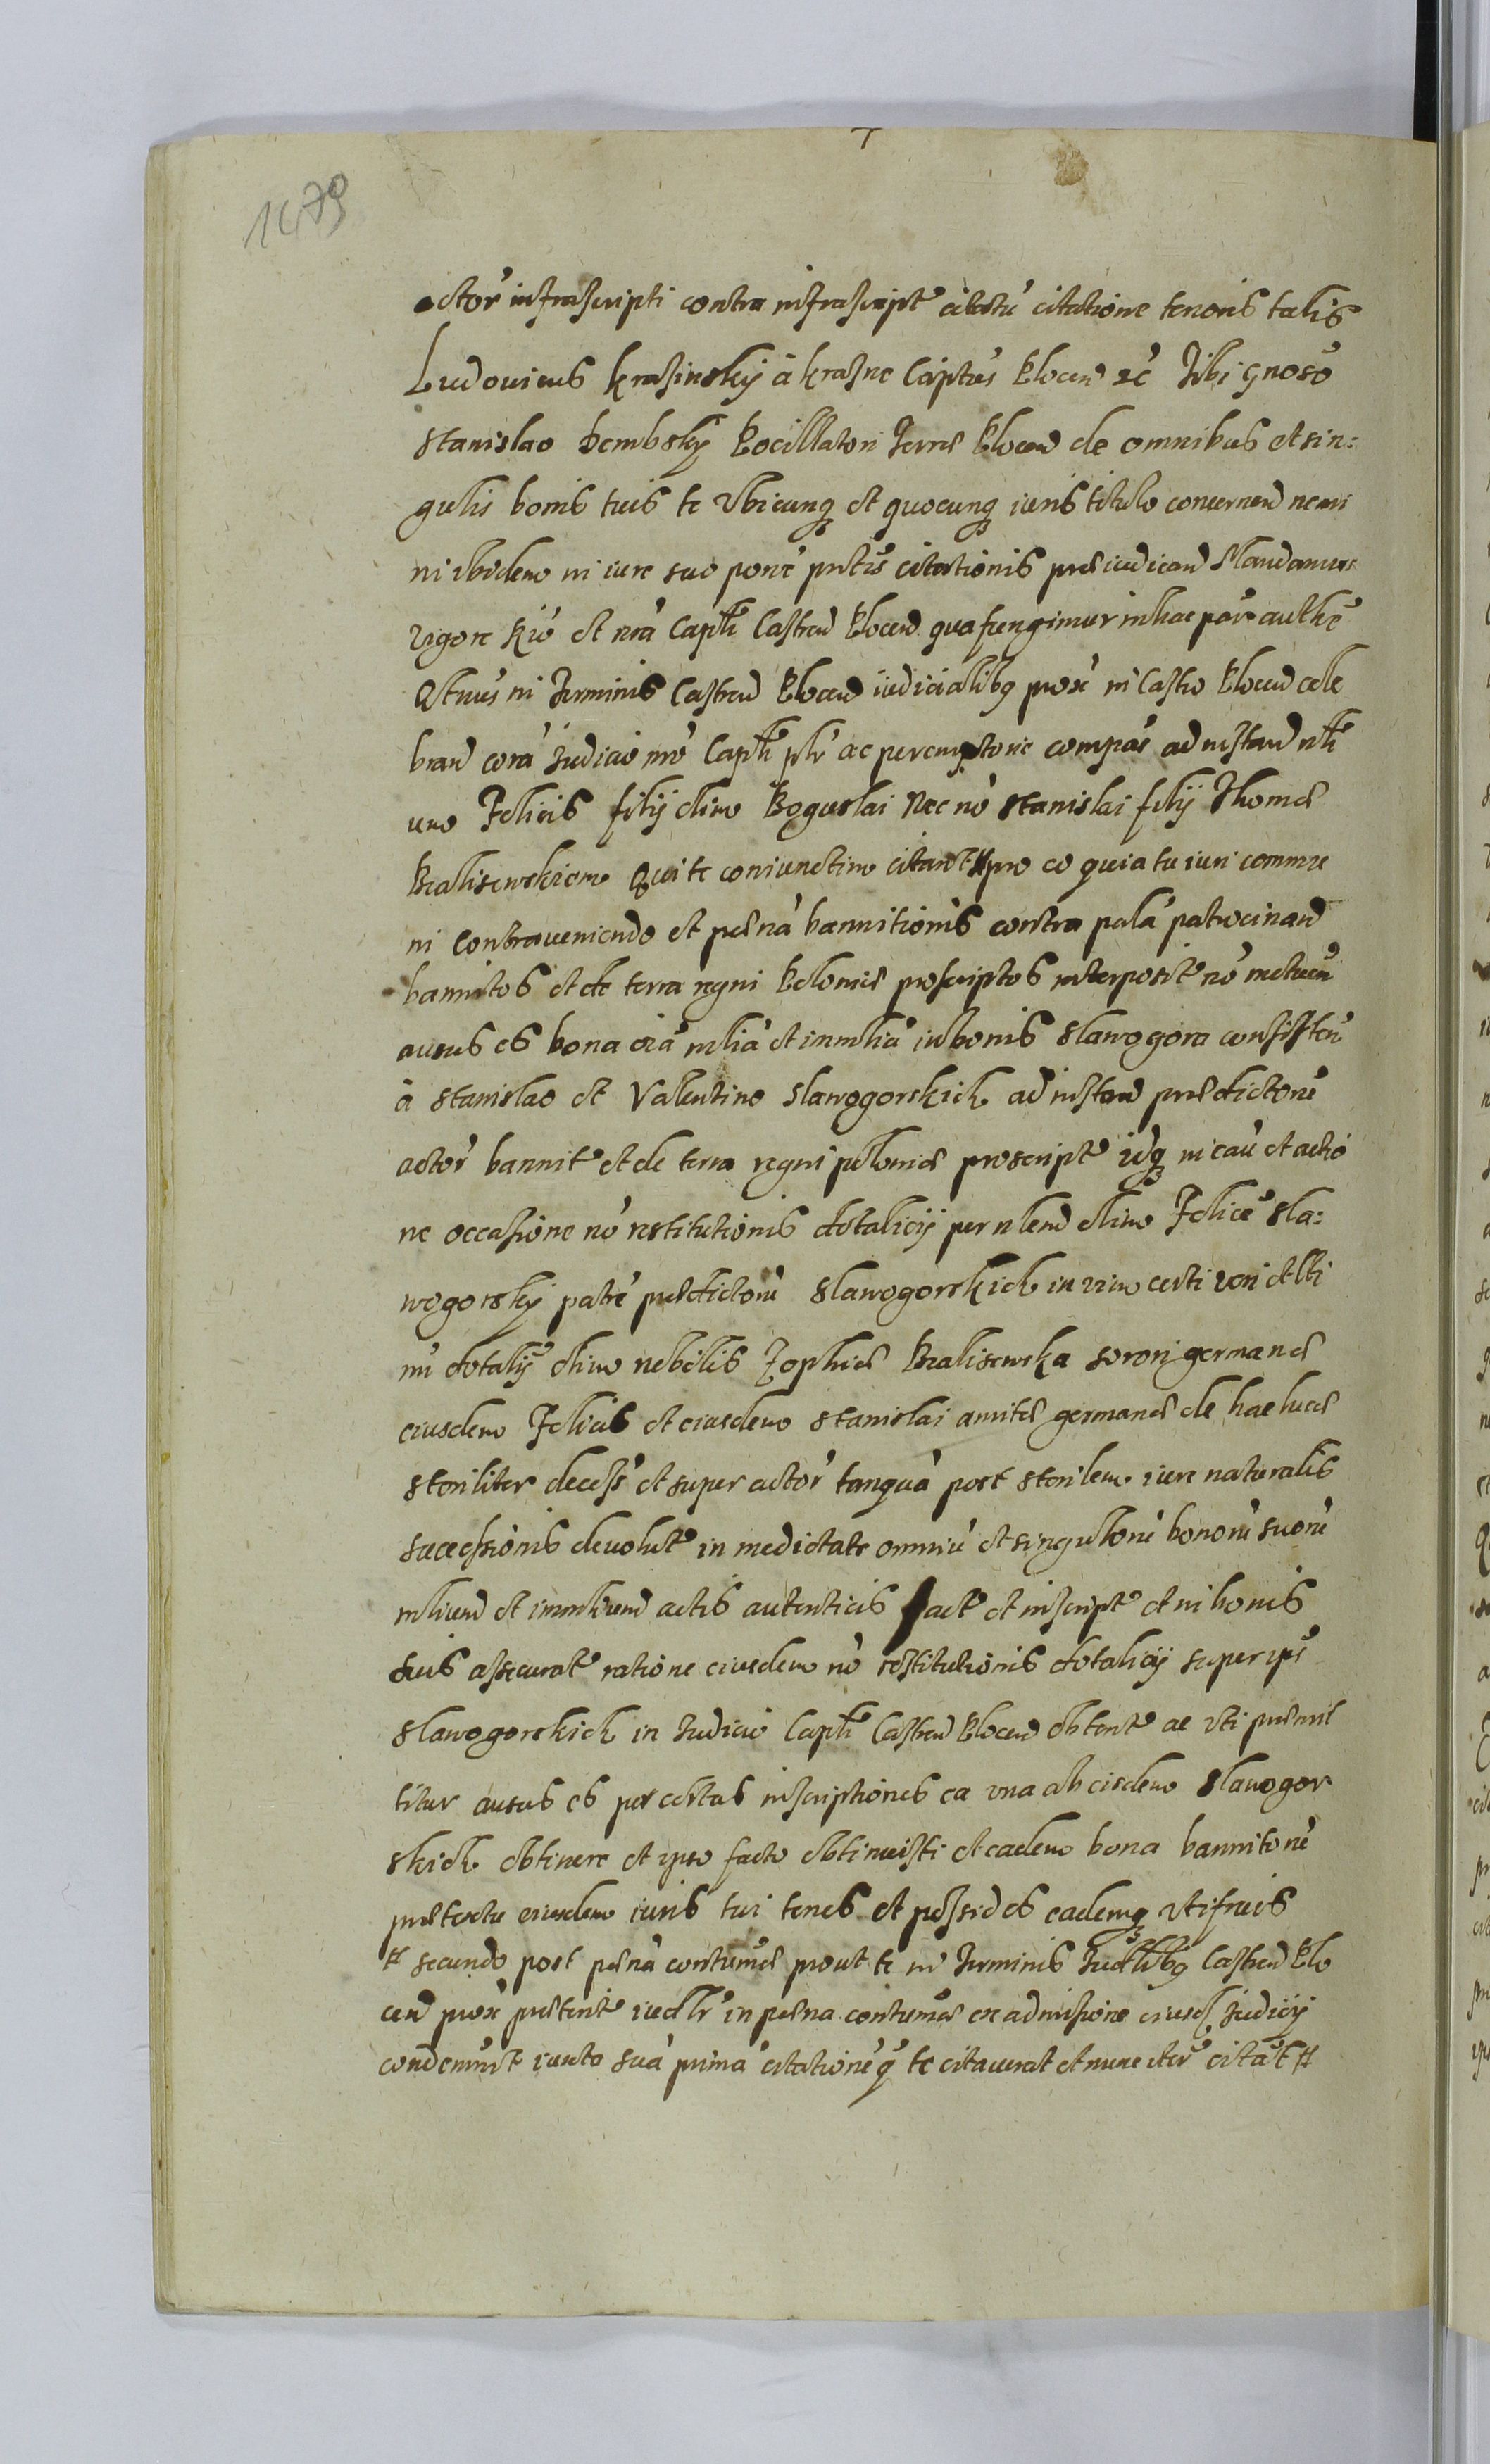 1479
actor' infrascripti contra infrascript' citatu' citatione tenoris talis
Ludouicus Krasinskij á Krasne Capt'us Plocen' etc' Tibi gnoso'
Stanislao Dembskij Pocillatori Terrae Plocen' de omnibus et sin=
gulis bonis tuis te vbicunq3 et quocunq3 iuris titulo concernen' nemi
ni ibidem in iure suo
vigore et n'ra Capt'li Castren' Plocen' qua fungimur in hac par'te auth'e
Q't'nus in Terminis Castren' Plocen' iudicialibq prox' in Castro Plocen' cele
bran' cora' Iudicio n'ro Capt'li pl'r ac peremptorie compas' ad instan' n'li
um Felicis filij olim Boguslai Nec no' Stanislai filij Thomae
Bzalisewskiem Qui te coniunctim citant # pro eo quia tu iuri commu
ni contraueniendo et paena' bannitionis contra pala' patrocinan'
bannitos et de terra regni Poloniae proscriptos interposit' no' metuen'
ausus es bona o'ia' m'lia' et imm'lia' in bonis Slawogora consisten'
á Stanislao et Valentino Slawogorskich ad instan' praedictoru'
actor' bannit' et de terra regni poloniae proscript' idq3 in cau' et actio
ne occasione no' restitutionis dotalicij per n'lem olim Felice' Sla=
wogorskij patre' praedictoru' Slawogorskich in vim certi veri et l'ti
mi dotalij olim nobilis Zophiae Bzalisewska sorori germanae
eiusdem Felicis et eiusdem Stanislai amitae germanae de hac luce
steriliter decess' et super actor' tanqua' post sterilem iure naturalis
successionis deuolut' in medietate omniu' et singuloru' bonoru' suoru'
m'lium et imm'lium actis autenticis fact' et inscript' et in bonis
suis assecurat' ratione eiusdem no' restitutionis dotalicij super ips'
Slawogorskich in Iudicio Capt'li Castren' Plocen' obtent' ac vti praemit
titur ausus es per certas inscriptiones ea vna ab eisdem Slawogor
skich obtinere et ipso facto obtinuisti et eadem bona bannitoru'
praetextu eiusdem iuris tui tenes et possides eademq3 vtifruis
# secundo post paena' contumae' prout te in Terminis Iud'libq Castren' Plo
cen' prox' praeterit' iud'lr' in paena contumae' ex admissione eiusd' Iudicij
condemn'it iuxta sua' prima' citatione' q' te citauerat et nunc iter' cita't #